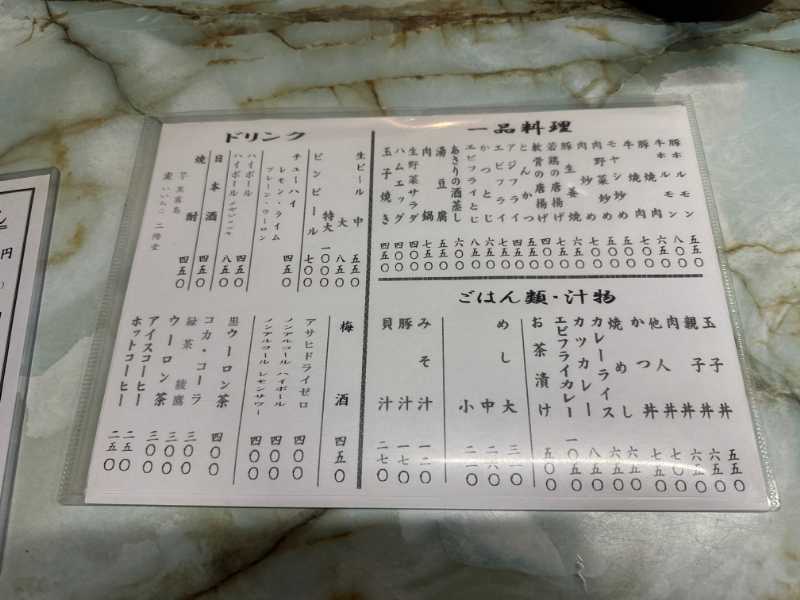 一品料理
豚ホルモン 五五〇
牛ホルモン 八〇〇
豚焼肉 五五〇
牛焼肉 七〇〇
モヤシ炒め
肉野菜炒め
豚生姜焼
若鶏の唐揚げ
軟骨の唐揚げ
とんかつ
アジフライ
エビフライ
かつとじ
エビフライとじ
あさりの酒蒸し
湯豆腐 五五〇
肉鍋 七五〇
生野菜サラダ 五五〇
ハムエッグ 四〇〇
玉子焼き 四五〇
ごはん類・汁物
玉子丼 五五〇
親子丼 六五〇
肉丼 七〇〇
他人丼 七五〇
かつ丼
焼めし
カレーライス 六五〇
カツカレー 八五〇
エビフライカレー 一〇五〇
お茶漬け 五〇〇
めし 大 三一〇
中 二六〇
小 二一〇
みそ汁 一二〇
豚汁 一七〇
貝汁 二七〇
ドリンク
生ビール 中 五五〇
大 八五〇
ビンビール 特大 一〇〇〇
七〇〇
チューハイ 四五〇
レモン・ライム
プレーン・ウーロン
ハイボール 四五〇
ハイボール メガジョッキ 八五〇
日本酒 四五〇
焼酎 四五〇
芋 黒霧島
麦 いいちこ 二階堂
梅酒 四五〇
アサヒドライゼロ 四〇〇
ノンアルコール ハイボール 四〇〇
ノンアルコール レモンサワー 四〇〇
黒ウーロン茶 四〇〇
コカ・コーラ 三〇〇
緑茶 綾鷹 三〇〇
ウーロン茶 三〇〇
アイスコーヒー 二五〇
ホットコーヒー 二五〇
円